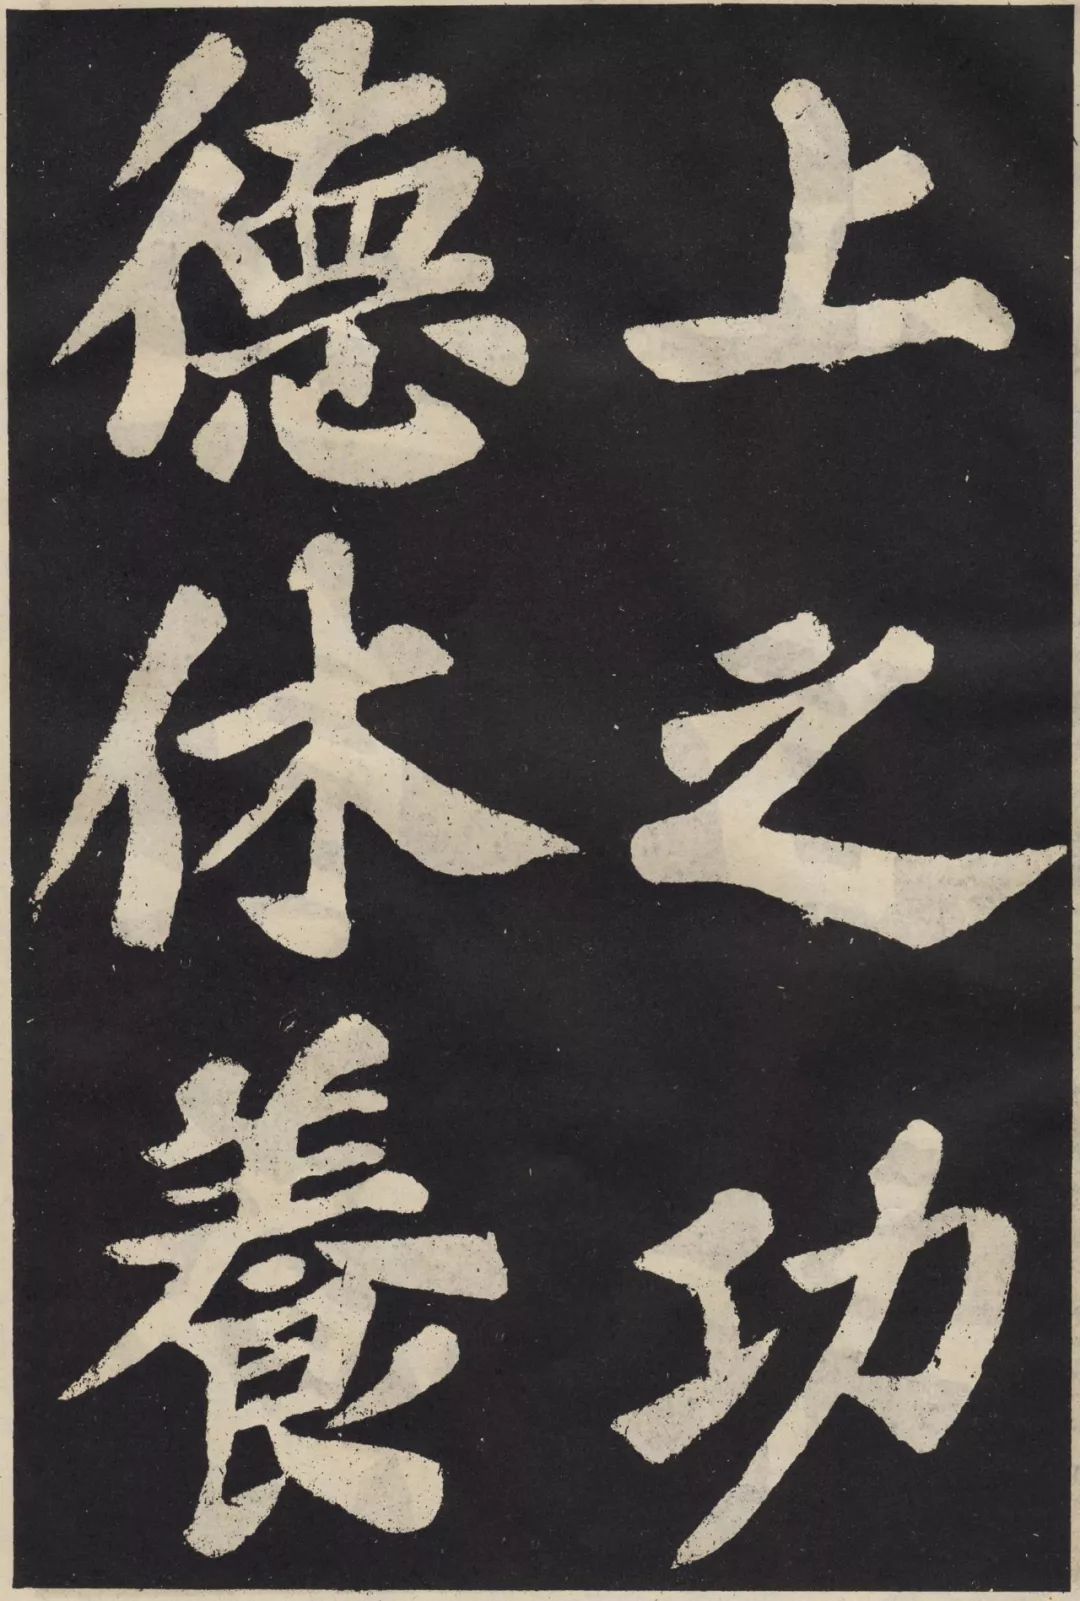 上之功
德休養